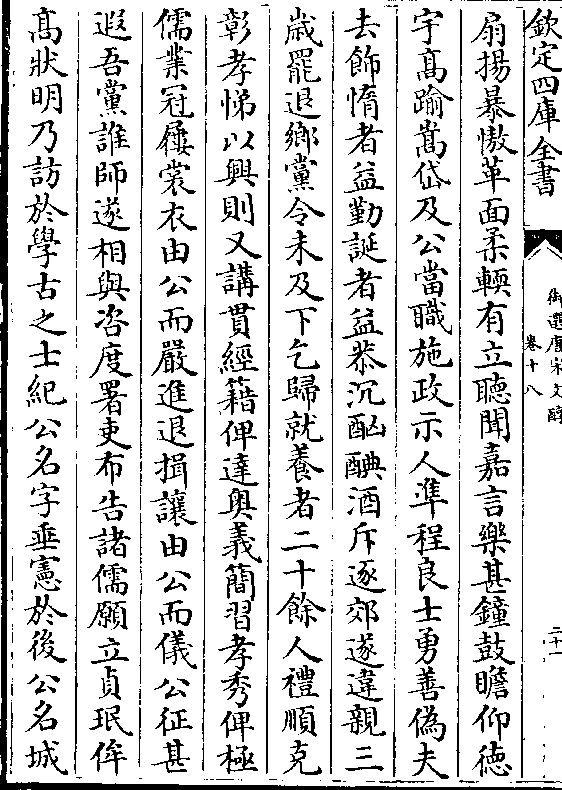 欽定四庫全書
御選唐宋文醇
卷十八
二十一
扇揚暴慠革面柔輭有立聽聞嘉言樂甚鐘鼓瞻仰徳
宇髙踰嵩岱及公當職施政示人準程良士勇善偽夫
去飾惰者益勤誕者益恭沉酗腆酒斥逐郊遂違親三
歳罷退鄉黨令未及下乞歸就養者二十餘人禮順克
彰孝悌以興則又講貫經籍俾達奥義簡習孝秀俾極
儒業冠屨裳衣由公而嚴進退揖讓由公而儀公征甚
遐吾黨誰師遂相與咨度署吏布告諸儒願立貞珉侔
髙狀明乃訪於學古之士紀公名字垂憲於後公名城